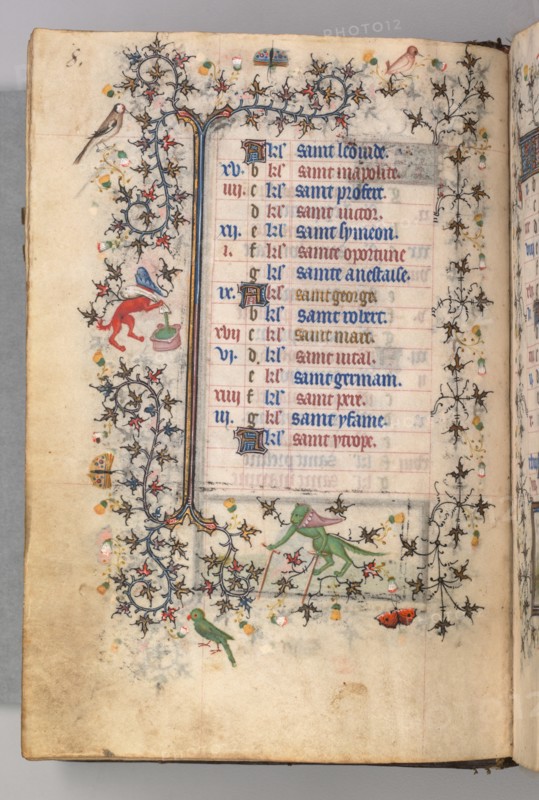 8.
A kl' saint leonide.
xv. b kl' saint mapolite.
iiii. c kl' saint profect.
d kl' saint uictor.
xii. e kl' saint symeon.
i. f kl' sainte oportune
g kl' sainte anestaise.
ix. A kl' saint george.
b kl' saint robert.
xvii c kl' saint marc.
vi. d. kl' saint uital.
e kl' saint germain.
xiiii f kl' saint pere.
iii. g kl' saint yfame.
A kl' saint ytrope.
PHOTO12